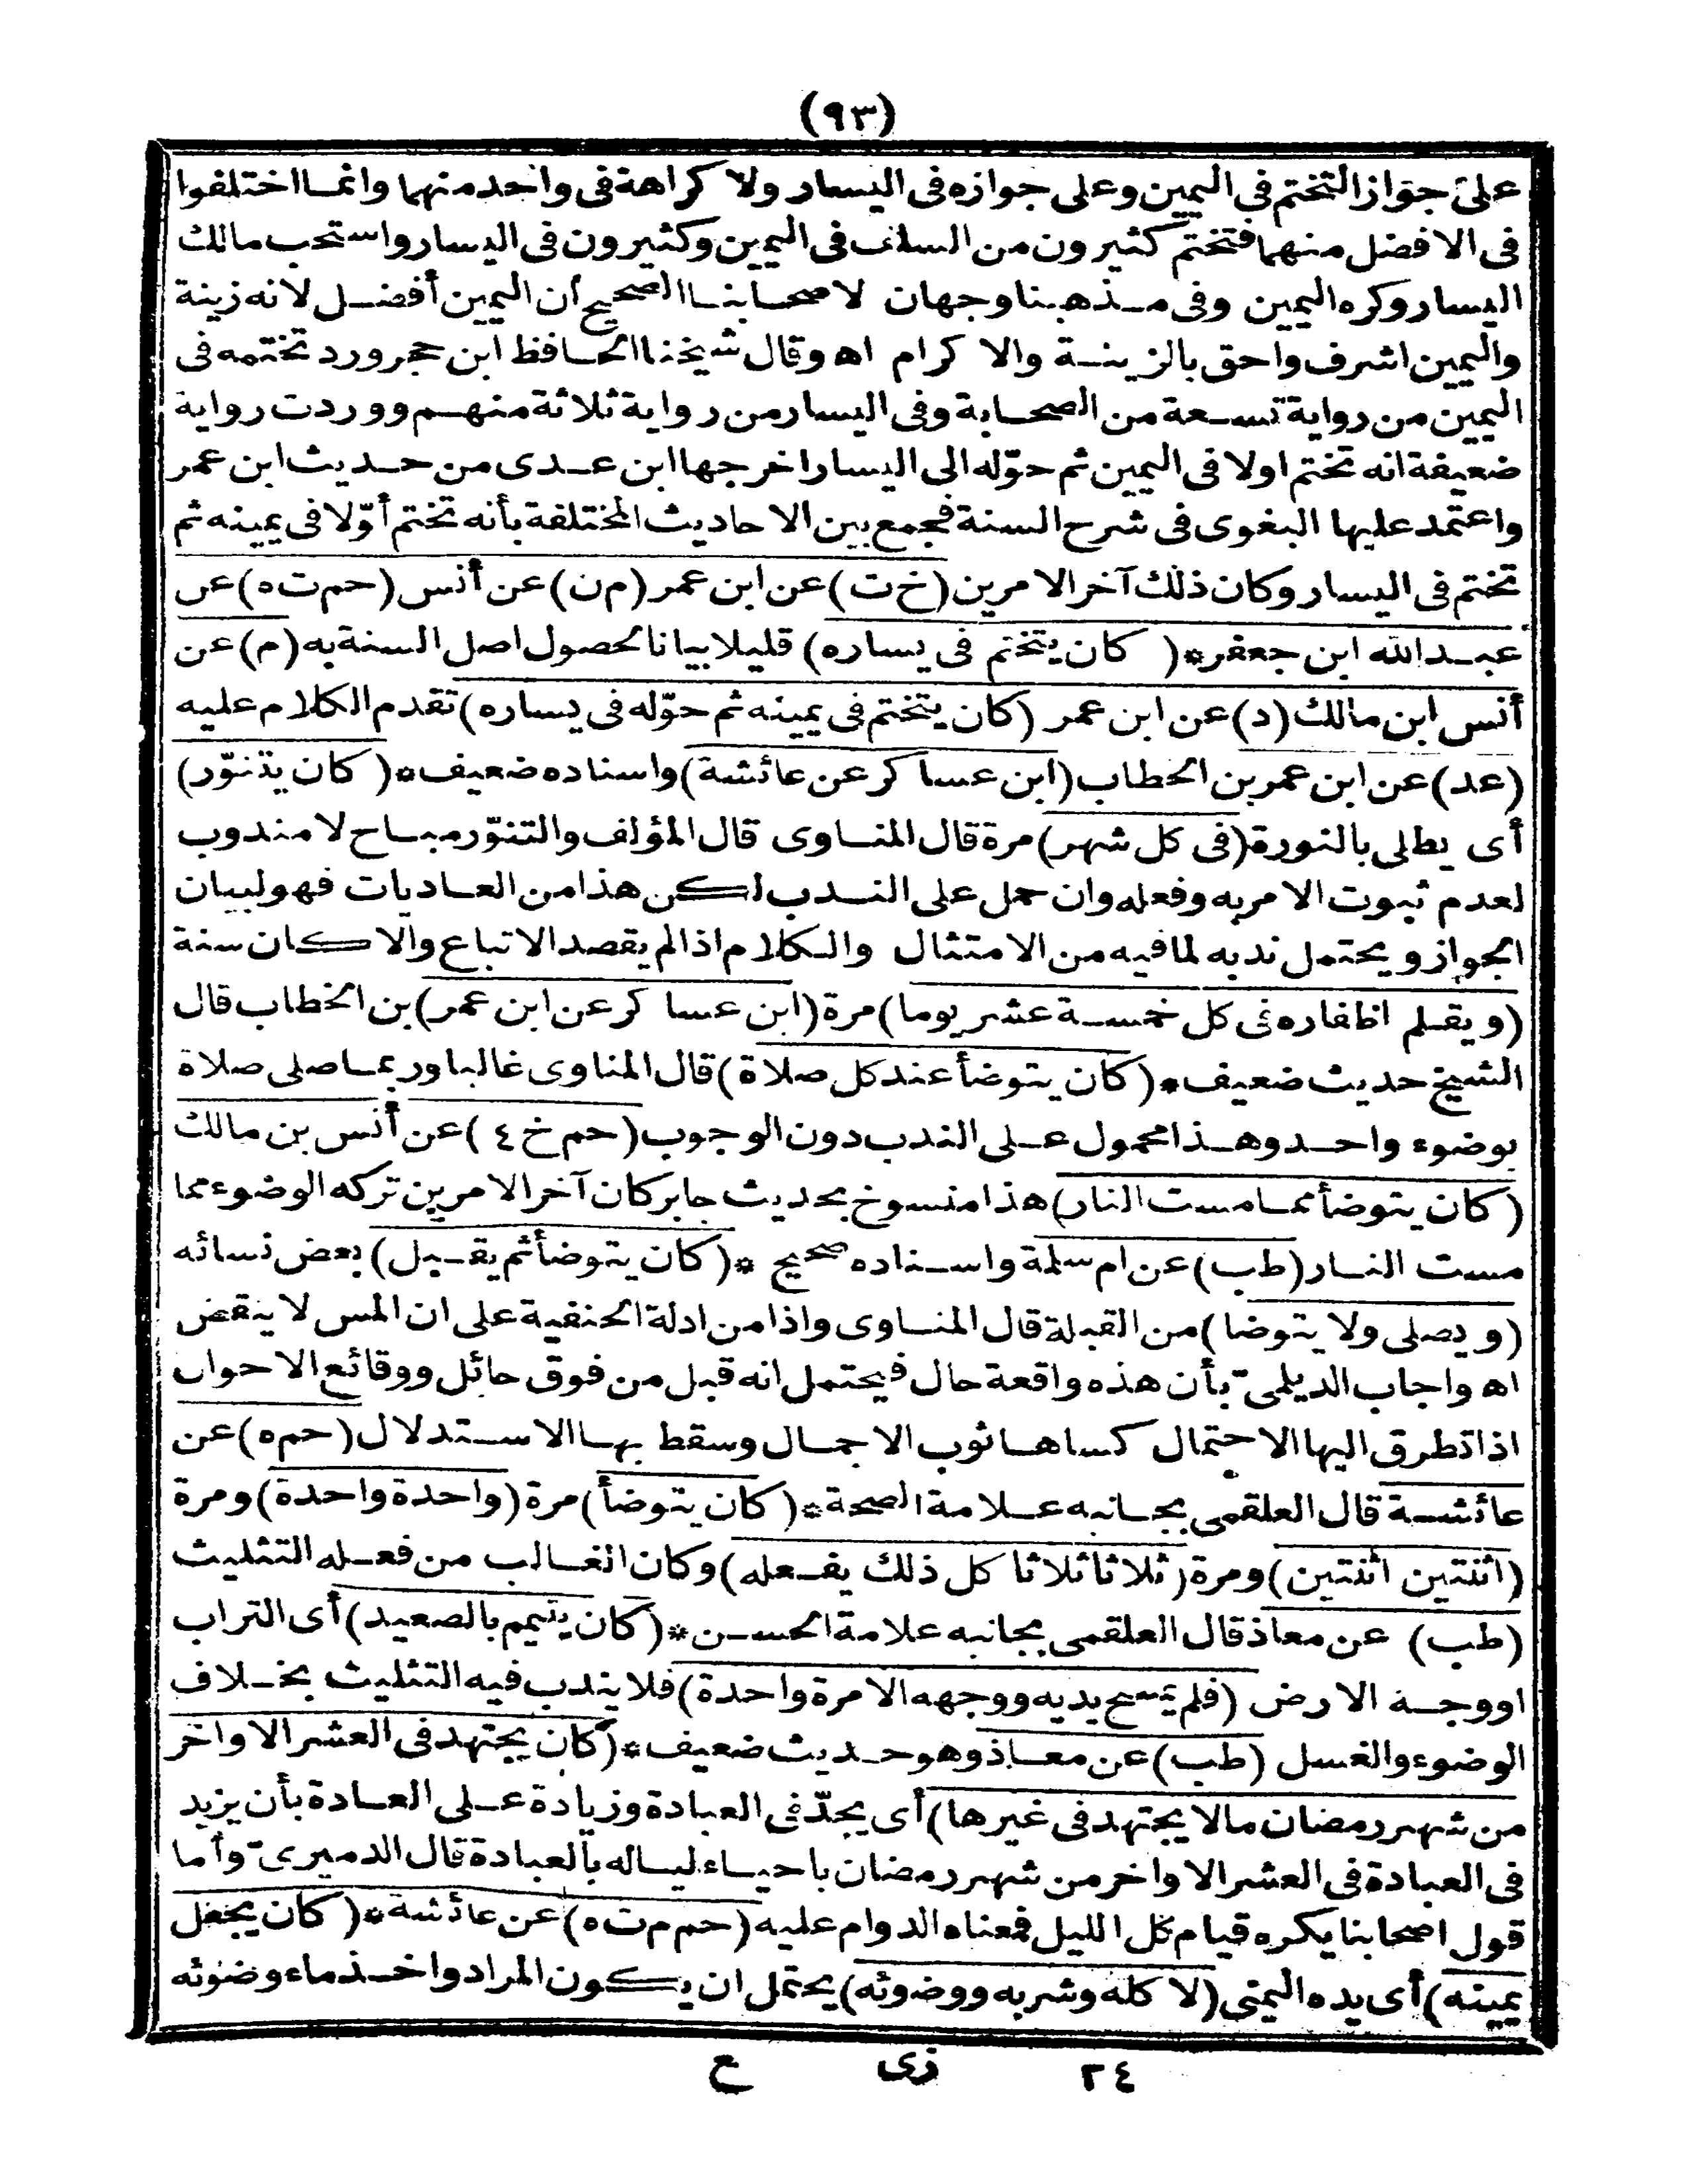 (٩٣)
على جواز التختم في اليمين وعلى جوازه في اليسار ولا كراهة في واحد منهما وانما اختلفوا
في الافضل منهما فتختم كثيرون من السلف في اليمين وكثيرون في اليسار واستحب مالك
اليسار وكره اليمين وفي مذهبنا وجهان لاصحابنا الصحيح أن اليمين أفضل لانه زينة
واليمين اشرف واحق بالزينة والاكرام اه وقال شيخنا الحافظ ابن حجر ورد تختمه في
اليمين من رواية تسعة من الصحابة وفي اليسار من رواية ثلاثة منهم ووردت رواية
ضعيفة انه تختم اولا في اليمين ثم حوّله الى اليسار اخرجها ابن عدى من حديث ابن عمر
واعتمد عليها البغوى في شرح السنة فجمع بين الاحاديث المختلفة بأنه تختم أوّلا في يمينه ثم
تختم في اليسار وكان ذلك آخر الامرين (خ ت) عن ابن عمر (م ن) عن أنس (حم ت ه) عن
عبد الله ابن جعفر * (كان يتختم في يساره) قليلا بيانا لحصول اصل السنة به (م) عن
أنس ابن مالك (د) عن ابن عمر (كان يتختم في يمينه ثم حوّله في يساره) تقدم الكلام عليه
(عد) عن ابن عمر بن الخطاب (ابن عساكر عن عائشة) واسناده ضعيف * (كان يتنوّر)
أى يطلى بالنورة (في كل شهر) مرة قال المناوى قال المؤلف والتنوّر مباح لا مندوب
لعدم ثبوت الامر به وفعله وان حمل على الندب لكن هذا من العاديات فهو لبيان
الجواز ويحتمل ندبه لما فيه من الامتثال والكلام اذا لم يقصد الاتباع والا كان سنة
(ويقلم اظفاره في كل خمسة عشر يوما) مرة (ابن عساكر عن ابن عمر) بن الخطاب قال
الشيخ حديث ضعيف * (كان يتوضأ عند كل صلاة) قال المناوى غالبا وربما صلى صلاة
بوضوء واحد وهذا محمول على الندب دون الوجوب (حم خ ٤) عن أنس بن مالك
(كان يتوضأ مما مست النار) هذا منسوخ بحديث جابر كان آخر الامرين تركه الوضوء مما
مست النار (طب) عن ام سلمة واسناده صحيح * (كان يتوضأ ثم يقبل) بعض نسائه
(ويصلى ولا يتوضا) من القبلة قال المناوى واذا من ادلة الحنفية على ان المس لا ينقض
اه واجاب الديلمىّ بأن هذه واقعة حال فيحتمل انه قبل من فوق حائل ووقائع الاحوال
اذا تطرق اليها الاحتمال كساها ثوب الاجمال وسقط بها الاستدلال (حم ه) عن
عائشة قال العلقمى بجانبه علامة الصحة * (كان يتوضأ) مرة (واحدة واحدة) ومرة
(اثنتين اثنتين) ومرة (ثلاثا ثلاثا كل ذلك يفعله) وكان الغالب من فعله التثليث
(طب) عن معاذ قال العلقمى بجانبه علامة الحسن * (كان يتيمم بالصعيد) أى التراب
او وجه الارض (فلم يمسح يديه ووجهه الا مرة واحدة) فلا يندب فيه التثليث بخلاف
الوضوء والغسل (طب) عن معاذ وهو حديث ضعيف * (كان يجتهد في العشر الاواخر
من شهر رمضان ما لا يجتهد في غيرها) أى يجدّ في العبادة وزيادة على العادة بأن يزيد
في العبادة في العشر الاواخر من شهر رمضان باحياء لياله بالعبادة قال الدميرىّ وأما
قول اصحابنا يكره قيام كل الليل فمعناه الدوام عليه (حم م ت ه) عن عائشة * (كان يجعل
يمينه) أى يده اليمنى (لاكله وشربه ووضوئه) يحتمل ان يكون المراد واخذ ماء وضوئه
٢٤ زى ع